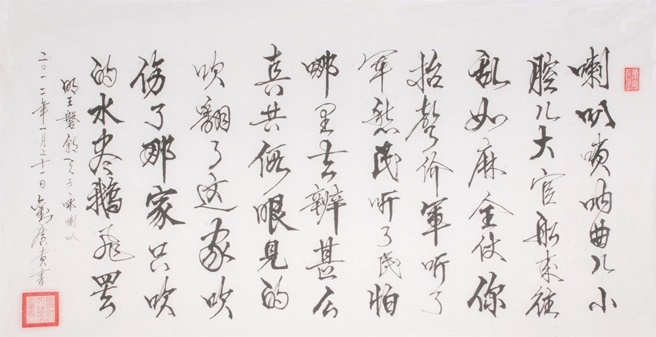 喇叭唢呐曲儿小
腔儿大官船来往
乱如麻全仗你
抬声价军听了
军愁民听了民怕
哪里去辨甚么
真共假眼见的
吹翻了这家吹
伤了那家只吹
的水尽鹅飞罢
明王磐朝天子咏喇叭
二〇一二年一月二十一日刘广书